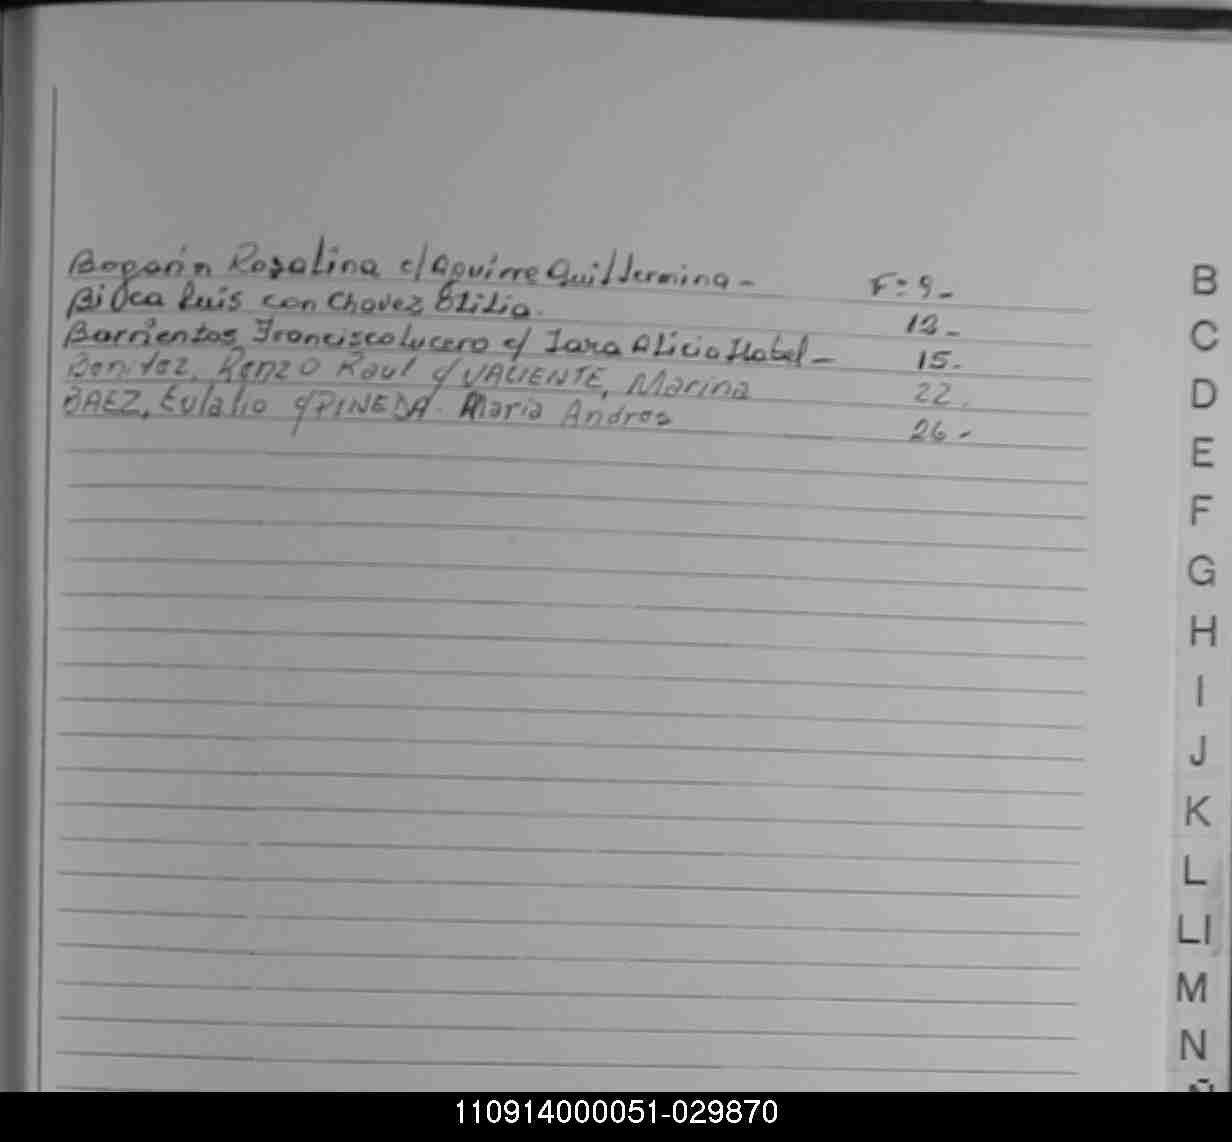 Bogarin Rosalina c/ Aguirre Guillermina - F: 9-
Luis con Chavez 12-
Barrientos, Francisco Lucero c/ Jara Alicia Isabel - 15-
Benitez, Renzo Raul c/ VALIENTE, Marina 22.
BAEZ, Eulalio c/ PINEDA. Maria Andrea 26-
B
C
D
E
F
G
H
I
J
K
L
Ll
M
N
Ñ
110914000051-029870